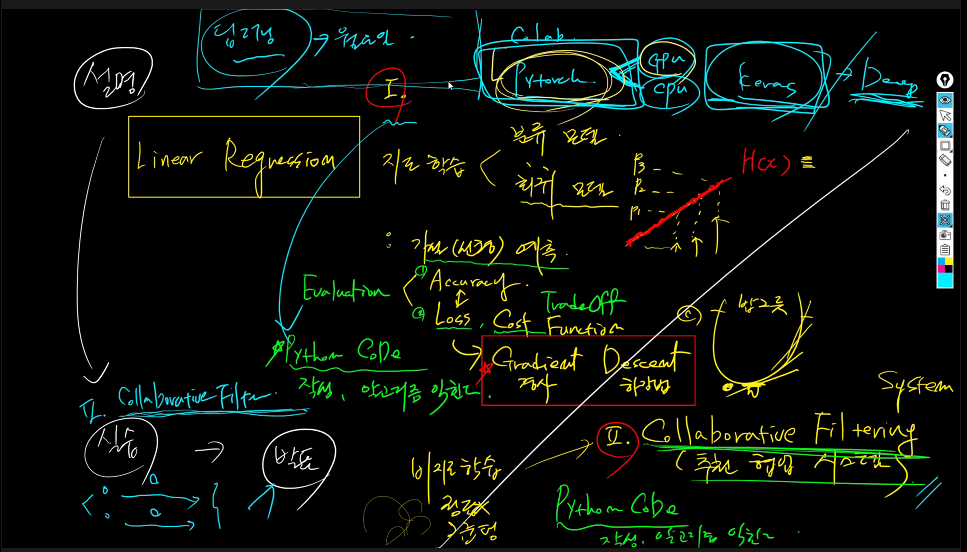 딥러닝 →
Colab.
설명
I.
Pytorch
GPU
CPU
Keras →
Linear Regression
지도학습 <
분류 모델.
회귀 모델
P3
P2
P1
H(x)
: 가설(선형) 예측.
Evaluation
① Accuracy
② Loss, Cost Function
TradeOff
Python CoDe
작성, 알고리즘 익힌다.
Gradient Descent
경사 하강법
II. Collaborative Filter.
실습 →
발표
System
II. Collaborative Filtering
(추천 협업 시스템)
비지도학습
Python CoDe
작성, 알고리즘 익힌다.